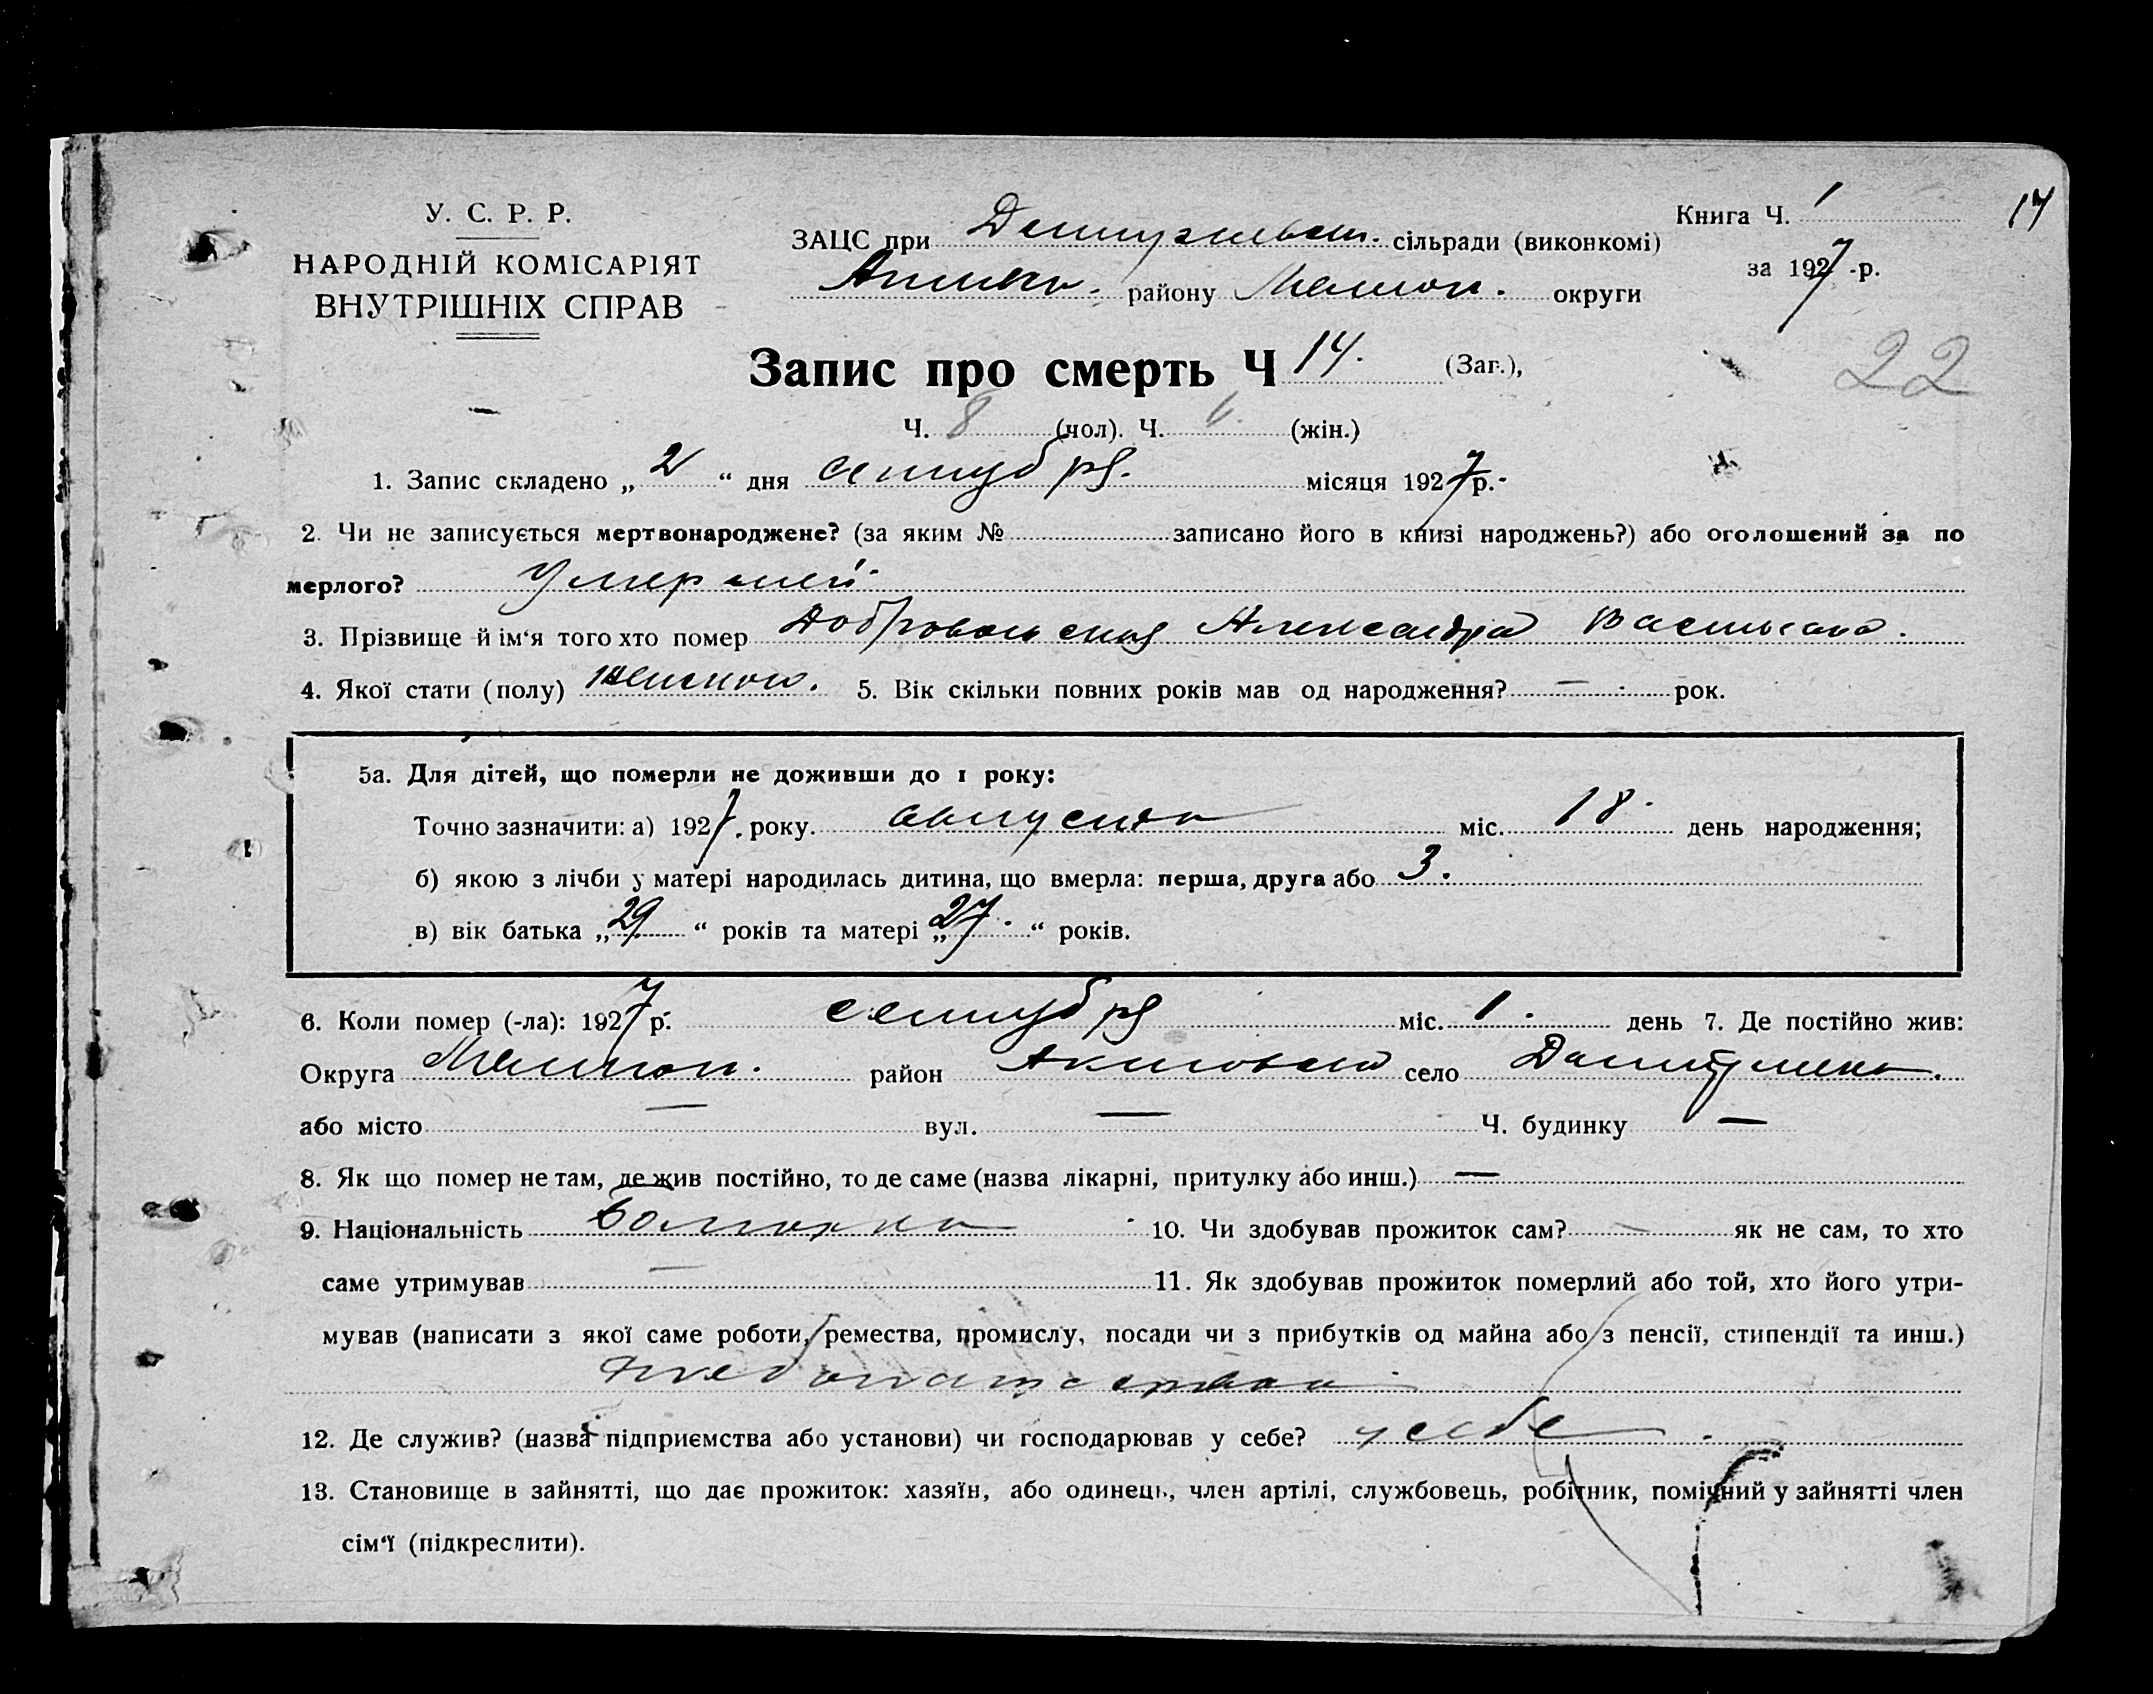 У. С. Р. Р.
НАРОДНІЙ КОМІСАРІЯТ
ВНУТРІШНІХ СПРАВ
Книга Ч. 1
17
ЗАЦС при сільради (виконкомі)
за 1927 -р.
району Мелитоп. округи
Запис про смерть Ч 14. (Заг.),
22
Ч. 8 (чол). Ч. (жін.)
1. Запис складено „ 2 “ дня сентября. місяця 1927 р.-
2. Чи не записується мертвонароджене? (за яким № записано його в книзі народжень?) або оголошений за по
мерлого? Умерший
3. Прізвище й ім‘я того хто помер Добровольская Александра Васильевна.
4. Якої стати (полу) женского. 5. Вік скільки повних років мав од народження? — рок.
5а. Для дітей, що померли не доживши до 1 року:
Точно зазначити: а) 1927. року. августа міс. 18 день народження;
б) якою з лічби у матері народилась дитина, що вмерла: перша, друга або 3.
в) вік батька „ 29 “ років та матері „ 27 “ років.
6. Коли помер (-ла): 1927 р. сентября міс. 1. день 7. Де постійно жив:
Округа Мелитоп. район Акимовский село
або місто — вул. — Ч. будинку —
8. Як що помер не там, де жив постійно, то де саме (назва лікарні, притулку або инш.) —
9. Національність 10. Чи здобував прожиток сам? — як не сам, то хто
саме утримував — 11. Як здобував прожиток померлий або той, хто його утри-
мував (написати з якої саме роботи, ремества, промислу, посади чи з прибутків од майна або з пенсії, стипендії та инш.)
хлебопашество
12. Де служив? (назва підприємства або установи) чи господарював у себе? у себе
13. Становище в зайнятті, що дає прожиток: хазяїн, або одинець, член артілі, службовець, робітник, помічний у зайнятті член
сім‘ї (підкреслити).